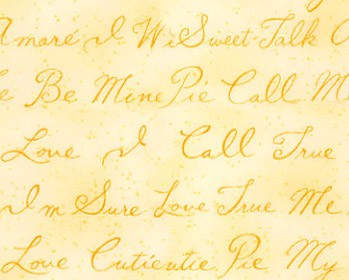 Amaré I Wi Sweet Talk
Be Mine Pie Call
Love I Call True
I'm Sure Love True Me
Love Cutientie Pie My